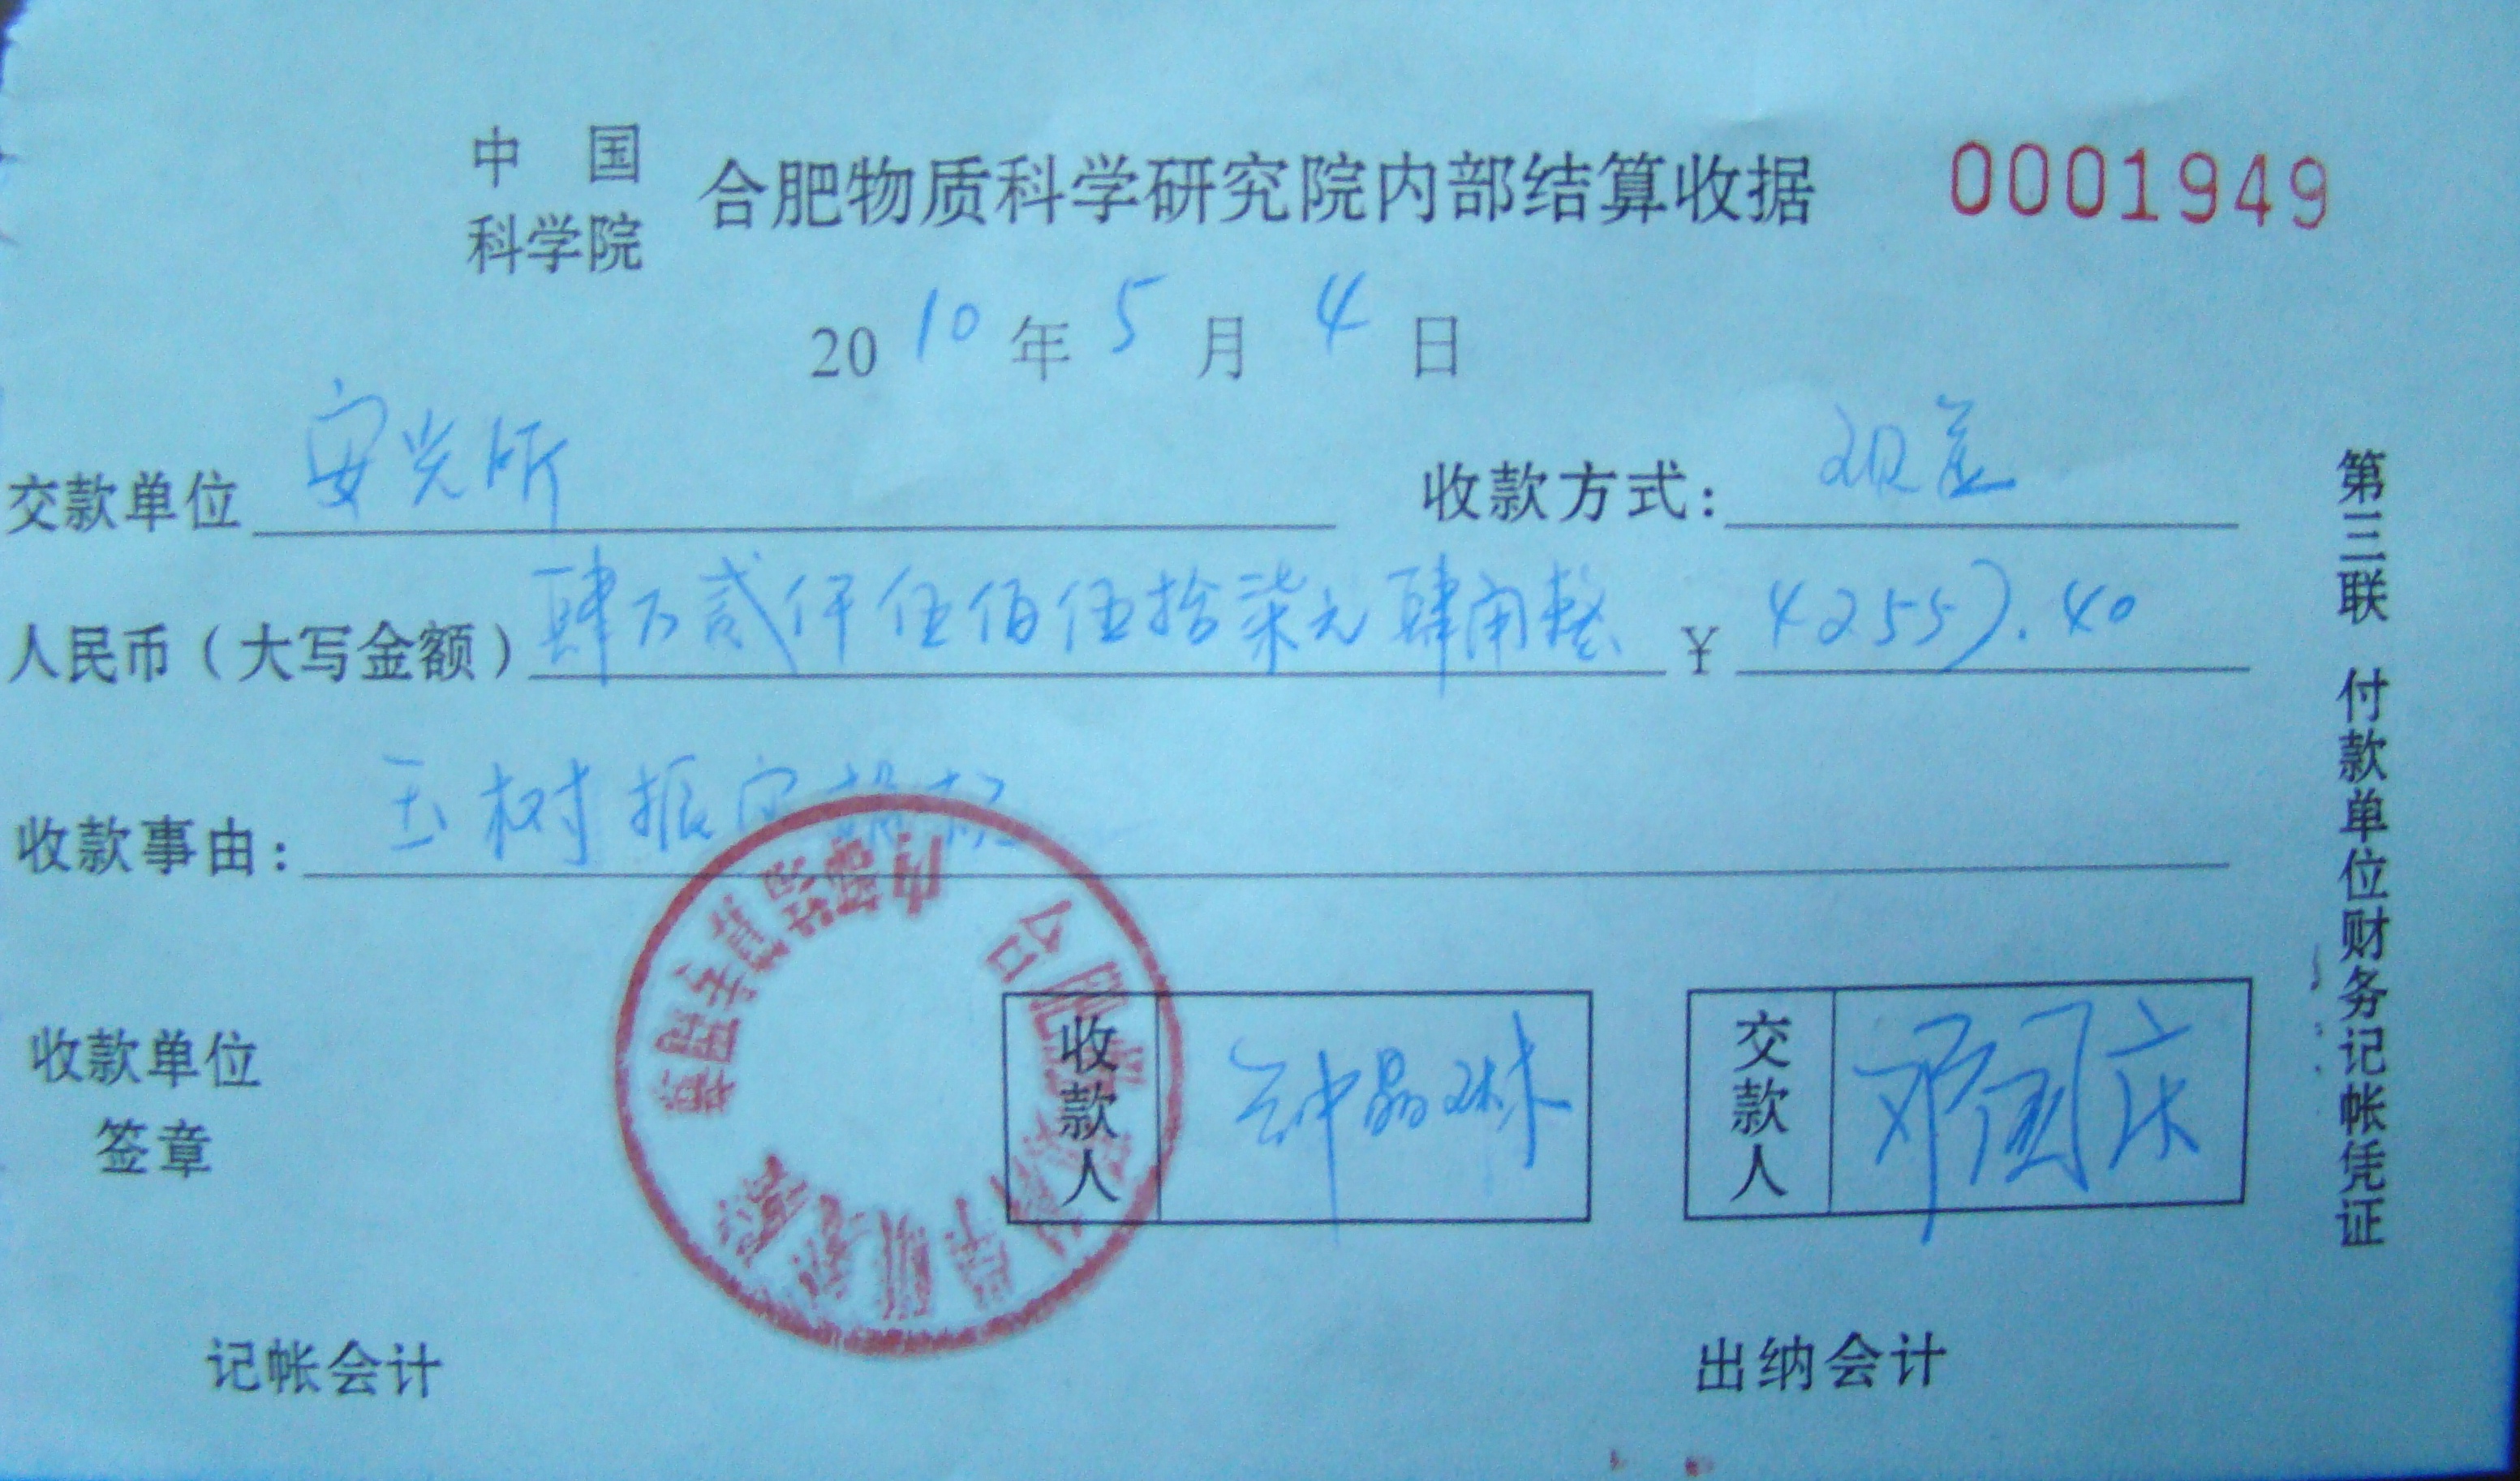 中国
科学院
合肥物质科学研究院内部结算收据 0001949
2010年5月4日
交款单位 安光所 收款方式: 现金
人民币(大写金额) 肆万贰仟伍佰伍拾柒元肆角整 ¥ 42557.40
收款事由: 玉树
收款单位
签章
收款人 钟晶琳
交款人 邓国庆
记帐会计 出纳会计
第三联 付款单位财务记帐凭证
合肥物质科学研究院